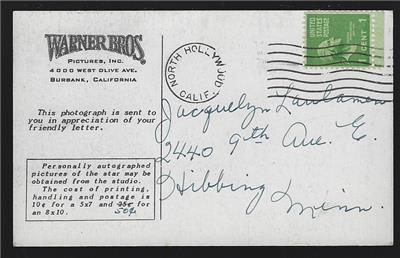 WARNER BROS.
PICTURES, INC.
4000 WEST OLIVE AVE.
BURBANK, CALIFORNIA
This photograph is sent to
you in appreciation of your
friendly letter.
Personally autographed
pictures of the star may be
obtained from the studio.
The cost of printing,
handling and postage is
10¢ for a 5x7 and 25¢ for
50¢
an 8x10.
NORTH HOLLYWOOD
CALIF.
UNITED STATES POSTAGE
1 CENT 1
Jacquelyn
2440 9th Ave. E.
Hibbing
Minn.